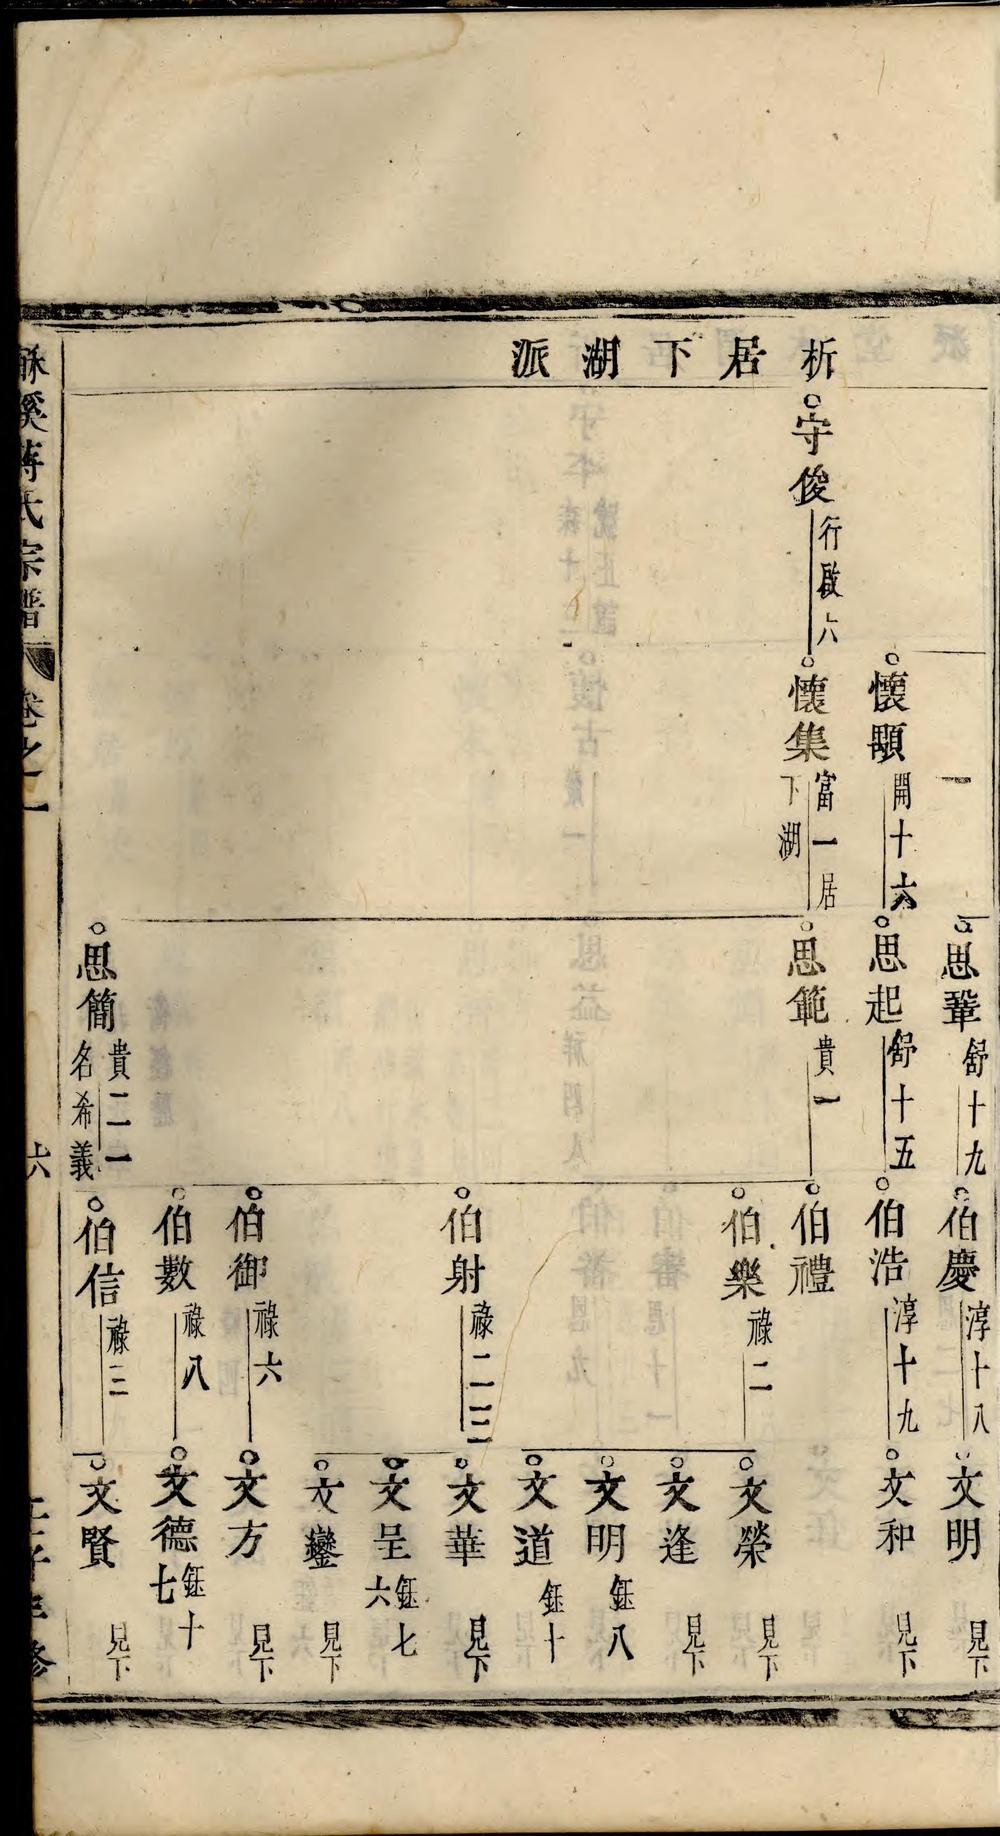 析居下湖派
守俊 行啟六
懷顒 開十六
懷集 富一居下湖
思鞏 舒十九
思起 舒十五
思範 貴一
思簡 貴二一名希義
伯慶 淳十八
伯浩 淳十九
伯禮
伯樂 祿二
伯射 祿二三
伯御 祿六
伯數 祿八
伯信 祿三
文明 見下
文和 見下
文榮 見下
文逢 見下
文明 鈺八
文道 鈺十
文華 見下
文呈 鈺七六
文鑾 見下
文方 見下
文德 鈺十七
文賢 見下
蔣氏宗譜 卷之一 六